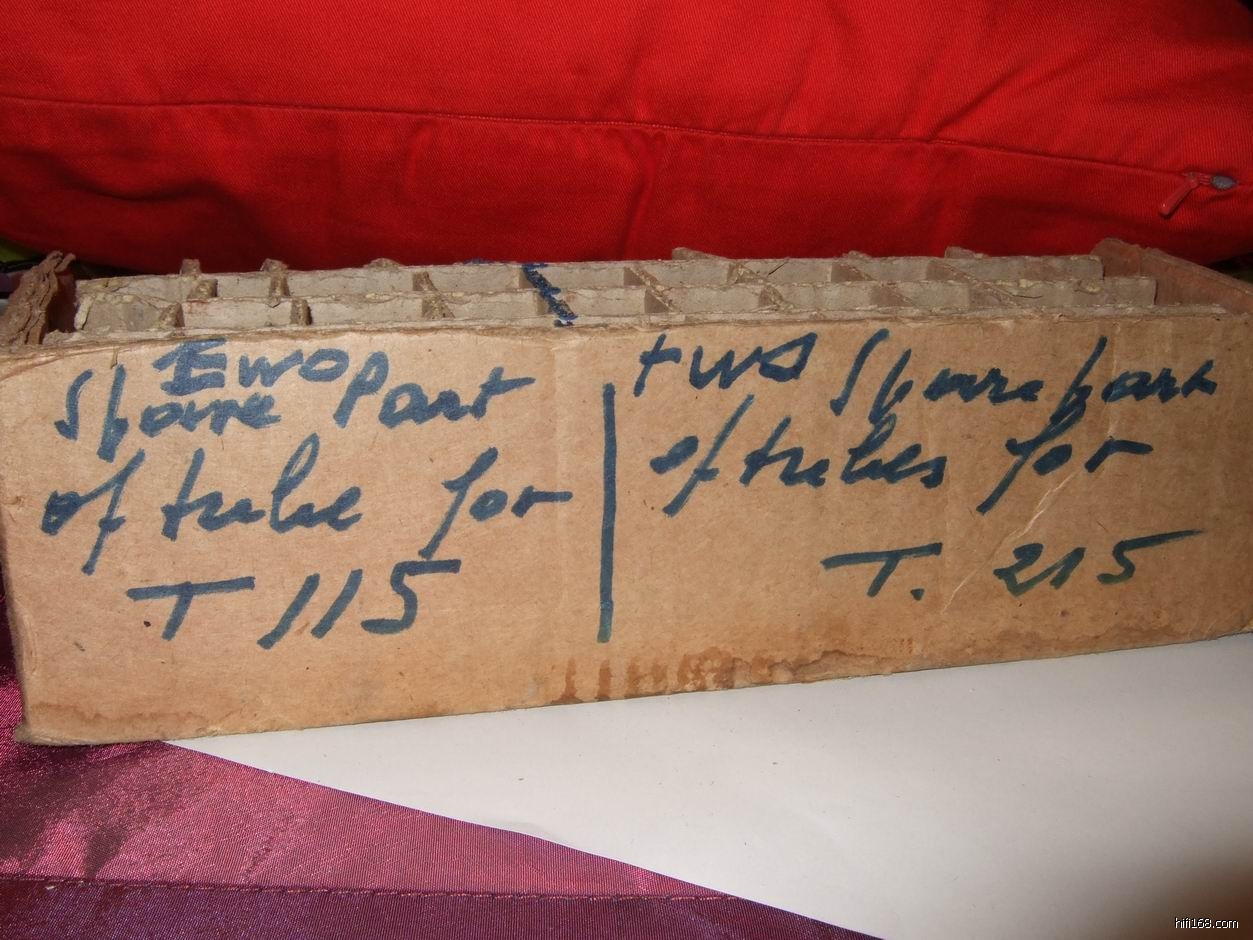 Ewo
Spare Part
of tube for
T 115
two Spare part
of tubes for
T. 215
hifi168.com